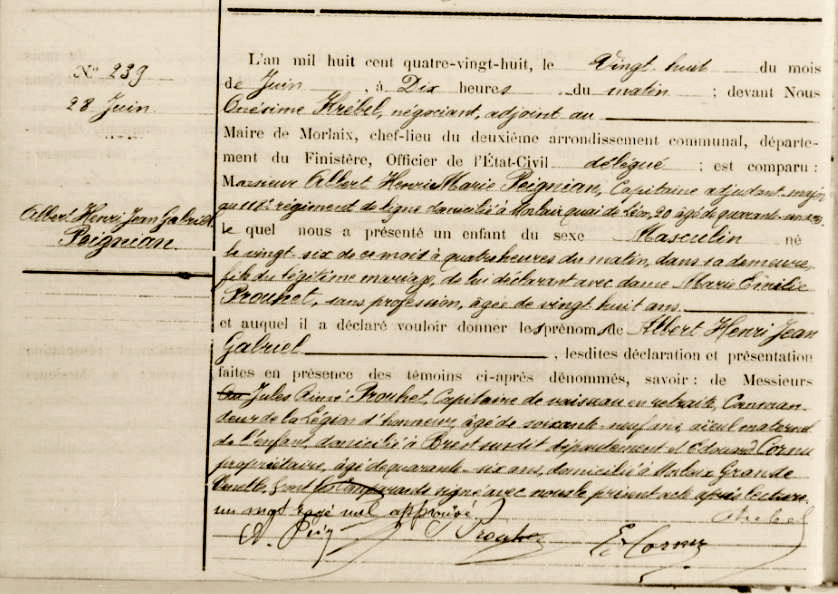 N° 239
28 Juin
Albert Henri Jean Gabriel
Peignian.
L'an mil huit cent quatre-vingt-huit, le Vingt huit du mois
de Juin, à Dix heures du matin ; devant Nous
Onésime Krébel, négociant, adjoint au
Maire de Morlaix, chef-lieu du deuxième arrondissement communal, départe-
ment du Finistère, Officier de l'État-Civil délégué ; est comparu :
Monsieur Albert Henri Marie Peignian, Capitaine adjudant major
au 118e régiment de ligne domicilié à Morlaix quai de Léon, 20 âgé de quarante
le quel nous a présenté un enfant du sexe Masculin né
le vingt six de ce mois à quatre heures du matin, dans sa demeure,
fils du légitime mariage, de lui déclarant avec dame Marie Emilie
Prouhet, sans profession, âgée de vingt huit ans.
et auquel il a déclaré vouloir donner les prénoms de Albert Henri Jean
Gabriel, lesdites déclaration et présentation
faites en présence des témoins ci-après dénommés, savoir : de Messieurs
Jules Aimé Prouhet, Capitaine de vaisseau en retraite, Comman-
deur de la Légion d'honneur, âgé de soixante-neuf ans, aïeul maternel
de l'enfant, domicilié à Brest susdit département et Edouard Cornu
propriétaire, âgé de quarante-six ans, domicilié à Morlaix Grande
Venelle, signé avec nous le présent acte après lecture.
un mot rayé nul approuvé
Krebel
A. Peig
Prouhet
E. Cornu